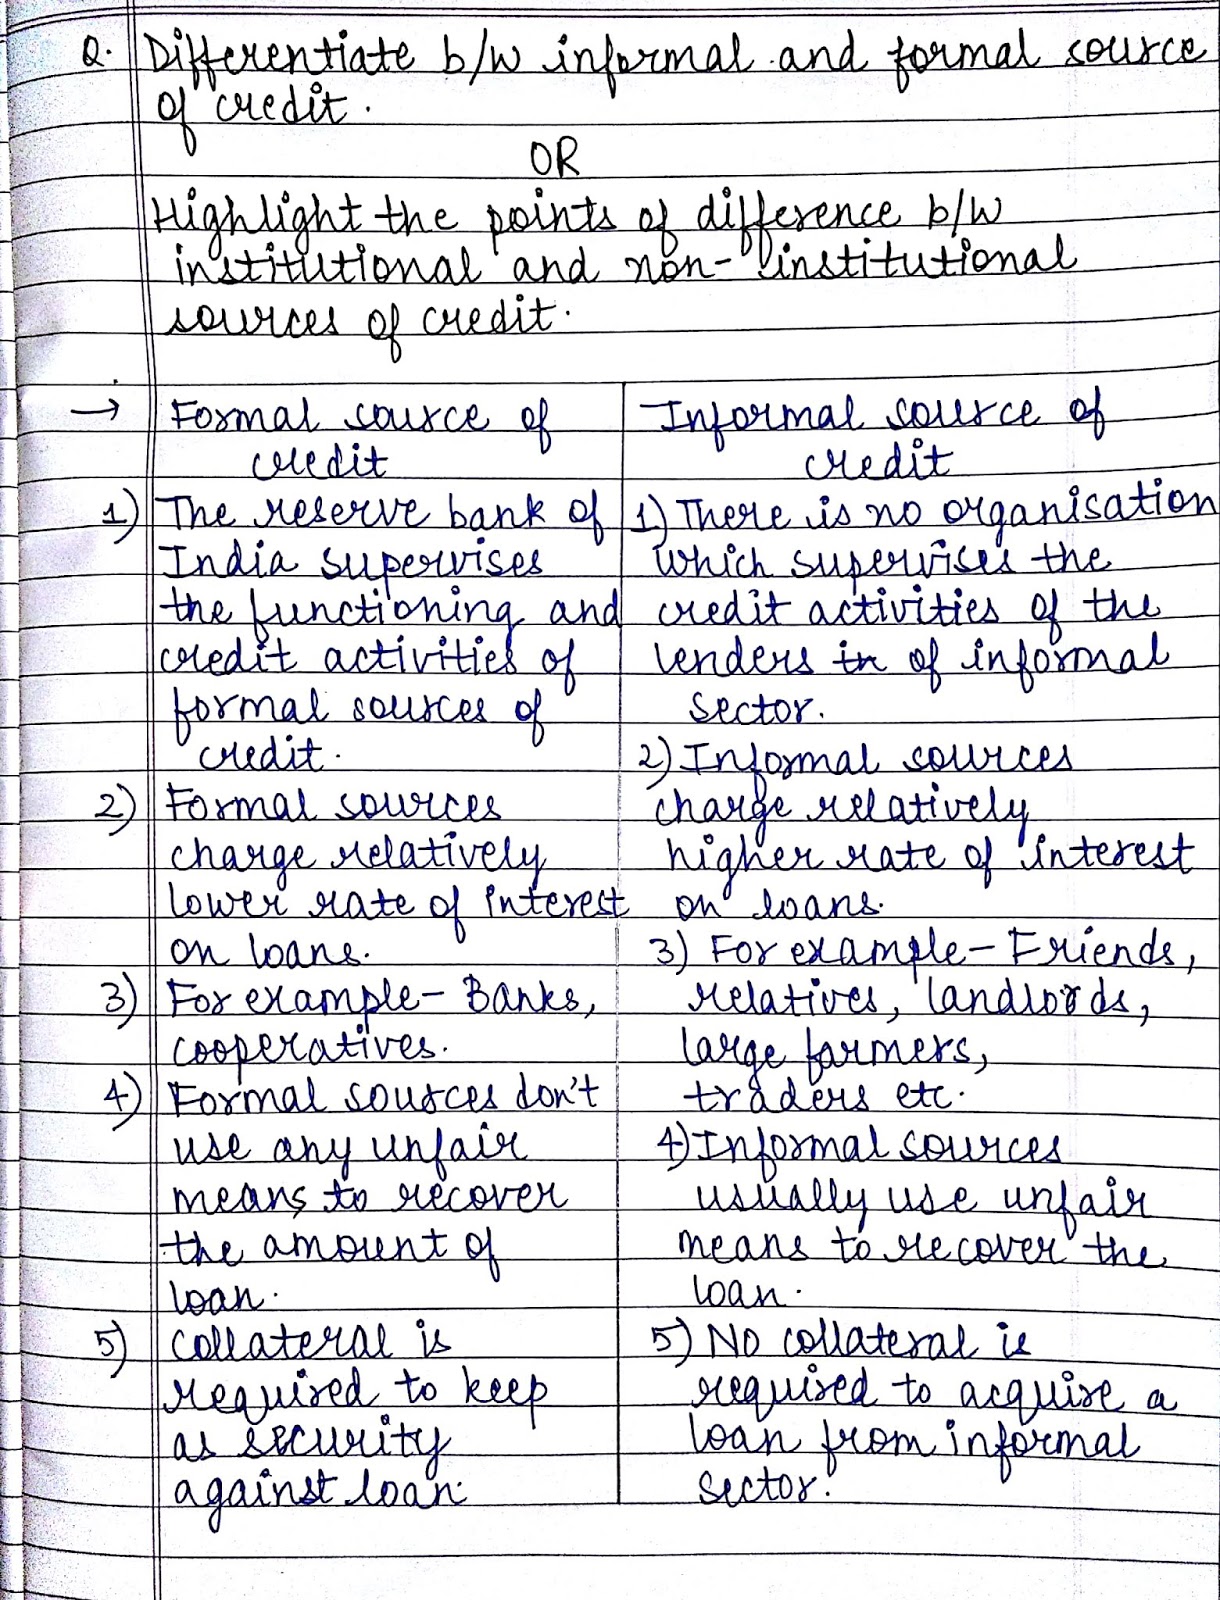 Q. Differentiate b/w informal and formal source
of credit.
OR
Highlight the points of difference b/w
institutional and non-institutional
sources of credit.
→ Formal source of
credit
1) The reserve bank of
India supervises
the functioning and
credit activities of
formal sources of
credit.
2) Formal sources
charge relatively
lower rate of interest
on loans.
3) For example- Banks,
cooperatives.
4) Formal sources don't
use any unfair
means to recover
the amount of
loan.
5) Collateral is
required to keep
as security
against loan.
Informal source of
credit
1) There is no organisation
which supervises the
credit activities of the
lenders in of informal
sector.
2) Informal sources
charge relatively
higher rate of interest
on loans.
3) For example- Friends,
relatives, landlords,
large farmers,
traders etc.
4) Informal sources
usually use unfair
means to recover the
loan.
5) No collateral is
required to acquire a
loan from informal
sector.